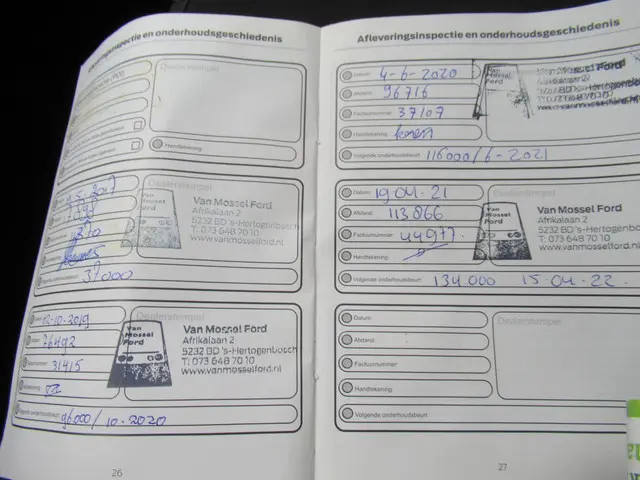 Afleveringsinspectie en onderhoudsgeschiedenis
Handtekening:
Dealerstempel
Van Mossel Ford
Van Mossel Ford
Afrikalaan 2
5232 BD 's-Hertogenbosch
T: 073 648 70 10
www.vanmosselford.nl
37000
Dealerstempel
02-10-2019
Van Mossel Ford
Van Mossel Ford
Afrikalaan 2
5232 BD 's-Hertogenbosch
T: 073 648 70 10
www.vanmosselford.nl
76492
31415
Volgende onderhoudsbeurt
96000/10-2020
26
Afleveringsinspectie en onderhoudsgeschiedenis
Datum: 4-6-2020
Afstand: 96716
Factuurnummer: 37107
Handtekening:
Van Mossel Ford
Volgende onderhoudsbeurt 116000/6-2021
Datum: 19.04.21
Afstand: 113866
Factuurnummer: 44977
Handtekening:
Van Mossel Ford
Van Mossel Ford
Afrikalaan 2
5232 BD 's-Hertogenbosch
T: 073 648 70 10
www.vanmosselford.nl
Volgende onderhoudsbeurt: 134.000 15.04.22.
Datum:
Afstand:
Factuurnummer:
Handtekening:
Dealerstempel
Volgende onderhoudsbeurt
27